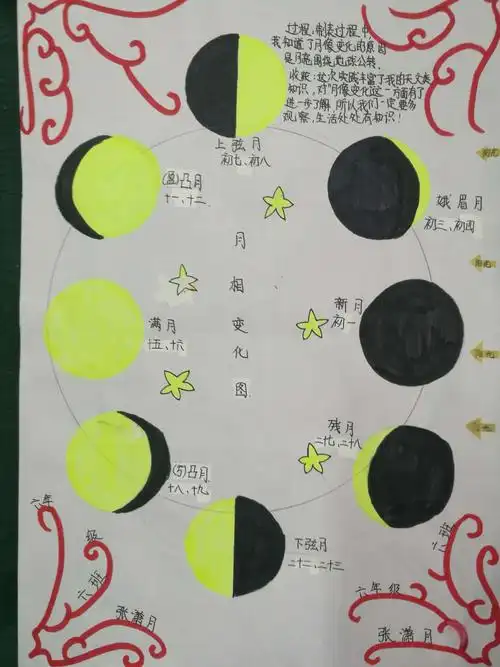 过程：制表过程中，
我知道了月像变化的原因
是月亮围绕地球公转。
收获：这次实践丰富了我的天文类
知识，对"月像变化这一方面有了
进一步了解，所以我们一定要多
观察，生活处处有知识！
上弦月
初七、初八
(盈)凸月
十一、十二
娥眉月
初三、初四
阳光
月相变化图
满月
十五、十六
新月
初一
阳光
阳光
残月
二十七、二十八
(亏)凸月
十八、十九
下弦月
二十二、二十三
六年级
六班
张潇月
六年级
六班
张潇月